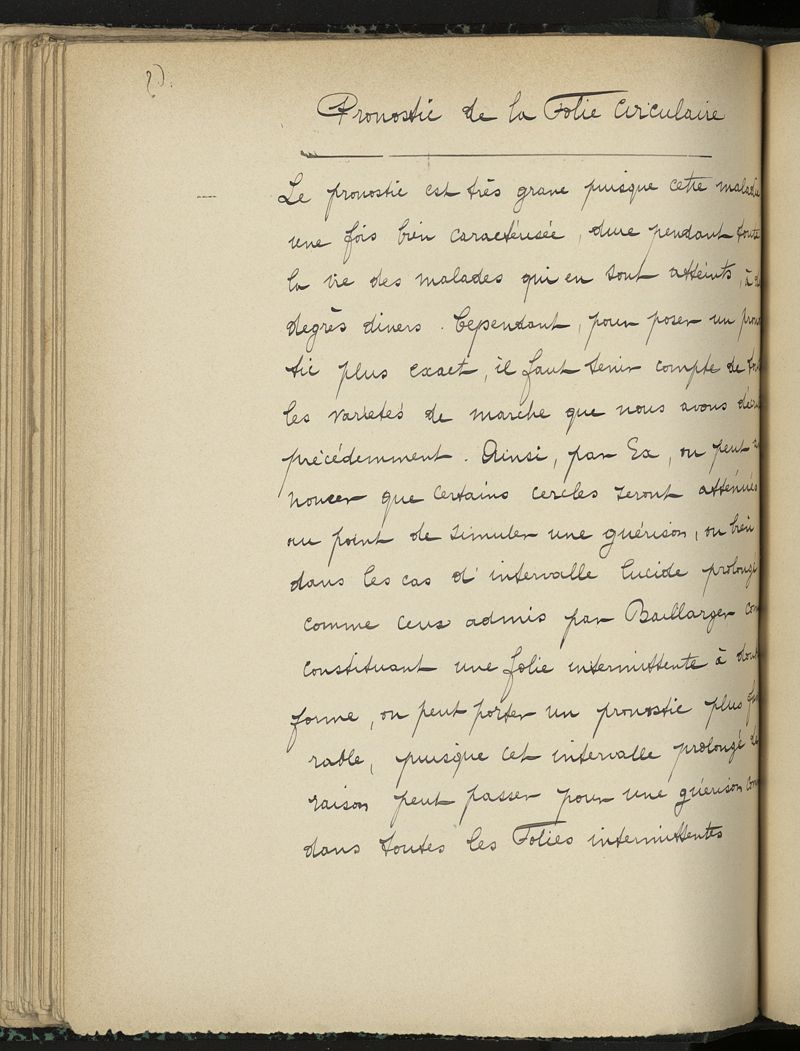 Pronostic de la Folie Circulaire
Le pronostic est très grave puisque cette maladie
une fois bien caractérisée, dure pendant toute
la vie des malades qui en sont atteints, à
degrès divers. Cependant, pour poser un pronos
tic plus exact, il faut tenir compte de
les varietés de marche que nous avons
précédemment. Ainsi, par Ex, on peut
noncer que certains cercles seront atténués
au point de simuler une guérison, ou bien
dans les cas d'intervalle lucide prolongé
comme ceux admis par Baillarger
constituant une folie intermittente à double
forme, on peut porter un pronostic plus
rable, puisque cet intervalle prolongé de
raison peut passer pour une guérison
dans toutes les Folies intermittentes